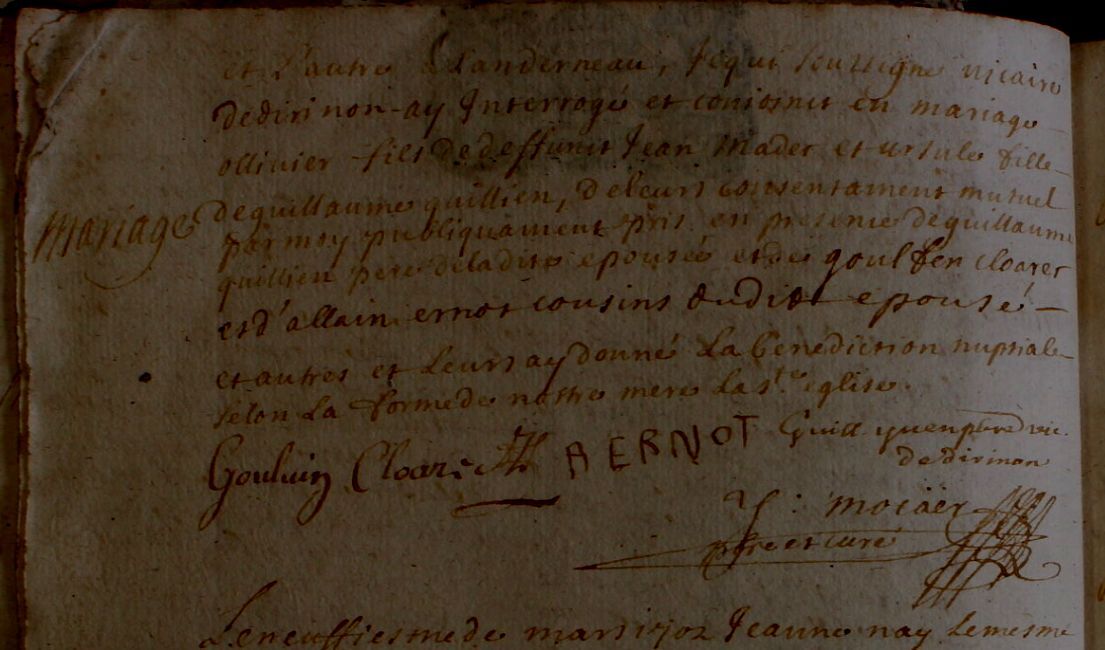 et L'autre Landerneau, Je qui soussigné vicaire
de dirinon ay Interrogé et conioinct en mariage
ollivier fils de deffunct Jean Mader et ursule fille
Mariage
de guillaume quillien, de leurs consentament mutuel
par moy publiquament pris en presence de guillaume
quillien pere de la dite epousée et de goulven cloarec
et d'allain ernot cousins dudit epousé
et autres et leurs ay donné La benediction nuptiale
selon La forme de nostre mere La s.te eglise.
Goulvin Cloarec A BERNOT Guill quen ptre vic.
de dirinon
Y : mocäer
ptre et curé
Le neuffiesme de mars 1702 Jeanne nay le mesme